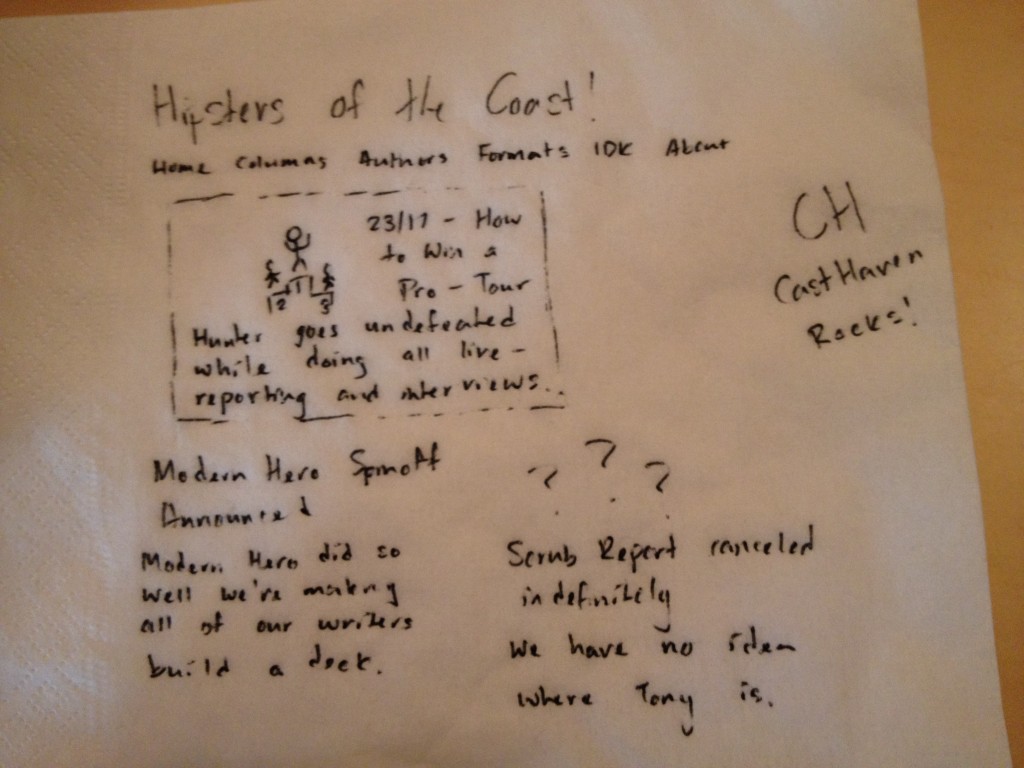 Hipsters of the Coast!
Home Columns Authors Formats IDK About
23/17 - How
to Win a
Pro-Tour
1
2
3
Hunter goes undefeated
while doing all live-
reporting and interviews..
CH
CastHaven
Rocks!
Modern Hero Spinoff
Announced
Modern Hero did so
well we're making
all of our writers
build a deck.
? ? ?
Scrub Report canceled
indefinitely
We have no idea
where Tony is.